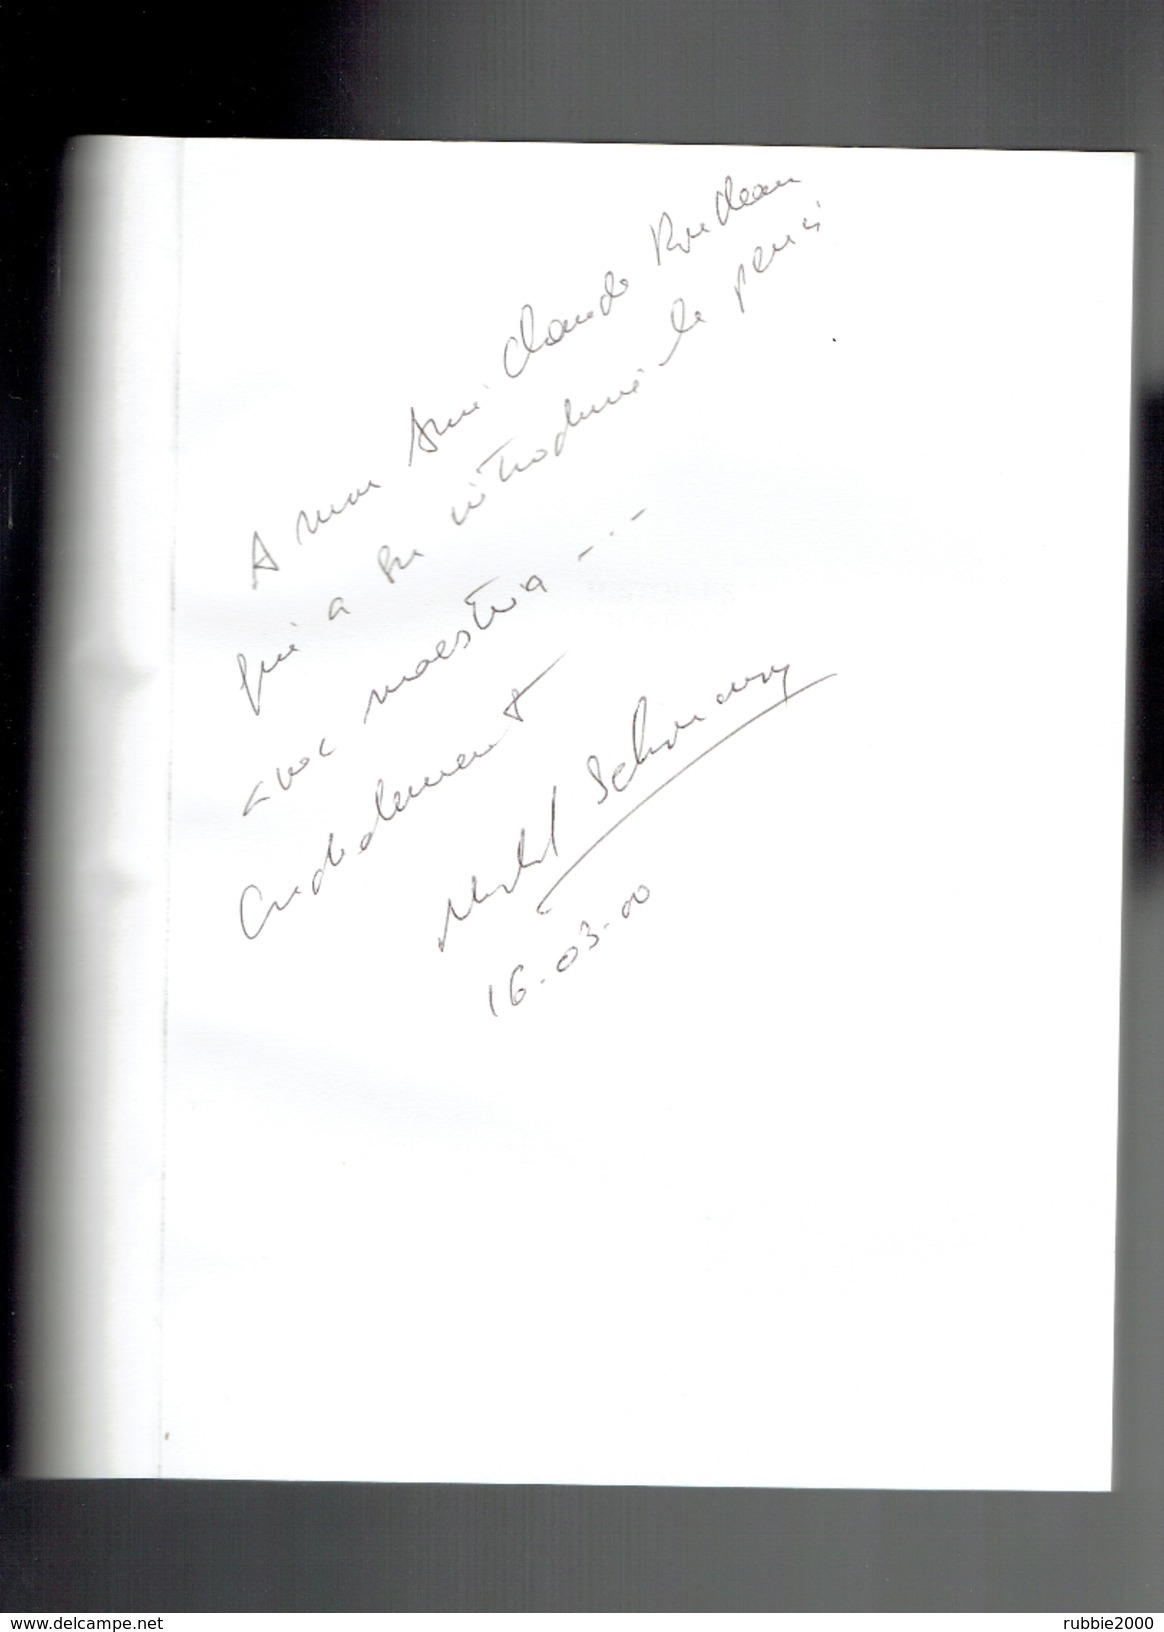 A mon Ami Claude Rondeau
qui a su introduire le penis
avec maestria - . -
Cordialement
Michel Schouary
16.03.00
HISTOIRES
delcampe.net
rubbie2000